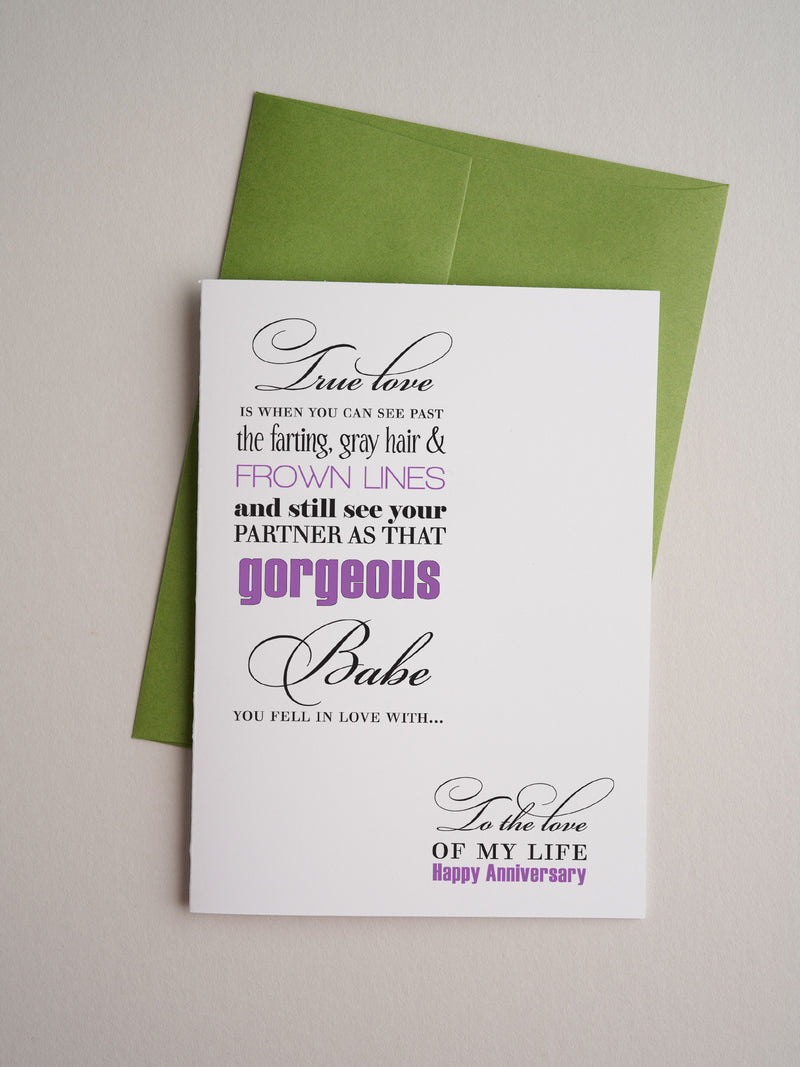 True love
IS WHEN YOU CAN SEE PAST
the farting, gray hair &
FROWN LINES
and still see your
PARTNER AS THAT
gorgeous
Babe
YOU FELL IN LOVE WITH...
To the love
OF MY LIFE
Happy Anniversary